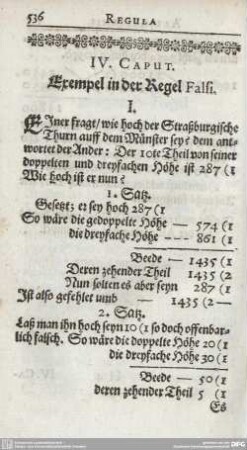 536 REGULA
IV. CAPUT.
Exempel in der Regel Falsi.
I.
EIner fragt/ wie hoch der Straßburgische
Thurn auff dem Münster sey? dem ant-
wortet der Ander: Der 10te Theil von seiner
doppelten und dreyfachen Höhe ist 287 (1
Wie hoch ist er nun?
1. Sätz.
Gesetzt; er sey hoch 287 (1
So wäre die gedoppelte Höhe — 574 (1
die dreyfache Höhe -- 861 (1
Beede — 1435 (1
Deren zehender Theil 1435 (2
Nun solten es aber seyn 287 (1
Ist also gefehlet umb — 1435 (2 —
2. Sätz.
Laß man ihn hoch seyn 10 (1 so doch offenbar-
lich falsch. So wäre die doppelte Höhe 20 (1
die dreyfache Höhe 30 (1
Beede — 50 (1
deren zehender Theil 5 (1
Es